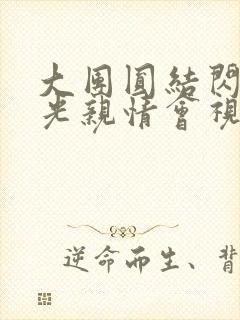 大團圓結閃
光親情會視
逆命而生、背